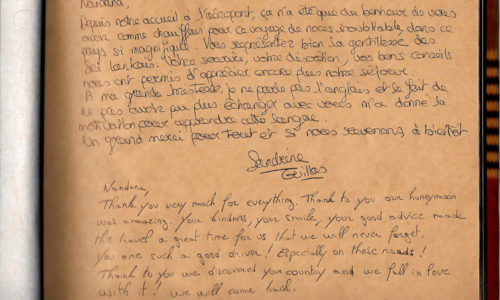 Nandana,
Depuis notre accueil à l'aéroport, ça n'a été que du bonheur de vous
avoir comme chauffeur pour ce voyage de noces inoubliable, dans ce
pays si magnifique. Vous représentez bien la gentillesse des
Sri Lankais. Votre sourire, votre discrétion, vos bons conseils
nous ont permis d'apprécier encore plus notre séjour.
A ma grande tristesse, je ne parle pas l'anglais et le fait de
ne pas avoir pu plus échanger avec vous m'a donné la
motivation pour apprendre cette langue.
Un grand merci pour tout et si nous revenons, à bientôt
Sandrine
Nandana,
Thank you very much for everything. Thank to you our honeymoon
was amazing. Your kindness, your smile, your good advice made
this travel a great time for us that we will never forget.
You are such a good driver! Especially on these roads!
Thank to you we discovered your country and we fell in love
with it! We will come back.